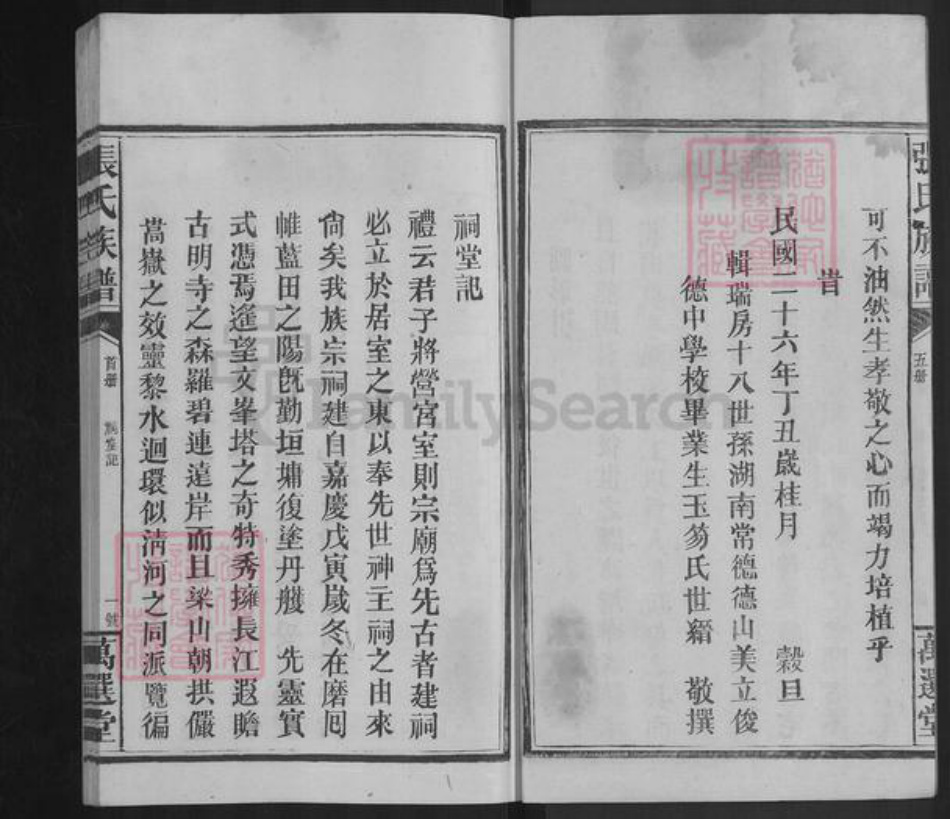 張氏族譜
五册
萬選堂
可不油然生孝敬之心而竭力培植乎
旹
民國二十六年丁丑歲桂月 穀旦
輯瑞房十八世孫湖南常德德山美立俊
德中學校畢業生玉笏氏世縉 敬撰
祠堂記
禮云君子將營宮室則宗廟爲先古者建祠
必立於居室之東以奉先世神主祠之由來
尙矣我族宗祠建自嘉慶戊寅歲冬在磨囘
帷藍田之陽旣勤垣墉復塗丹雘 先靈實
式憑焉遙望文峯塔之奇特秀擁長江遐瞻
古明寺之森羅碧連遠岸而且梁山朝拱儼
嵩嶽之效靈黎水迴環似淸河之同派覽徧
張氏族譜
首册
祠堂記
一號
萬選堂
FamilySearch